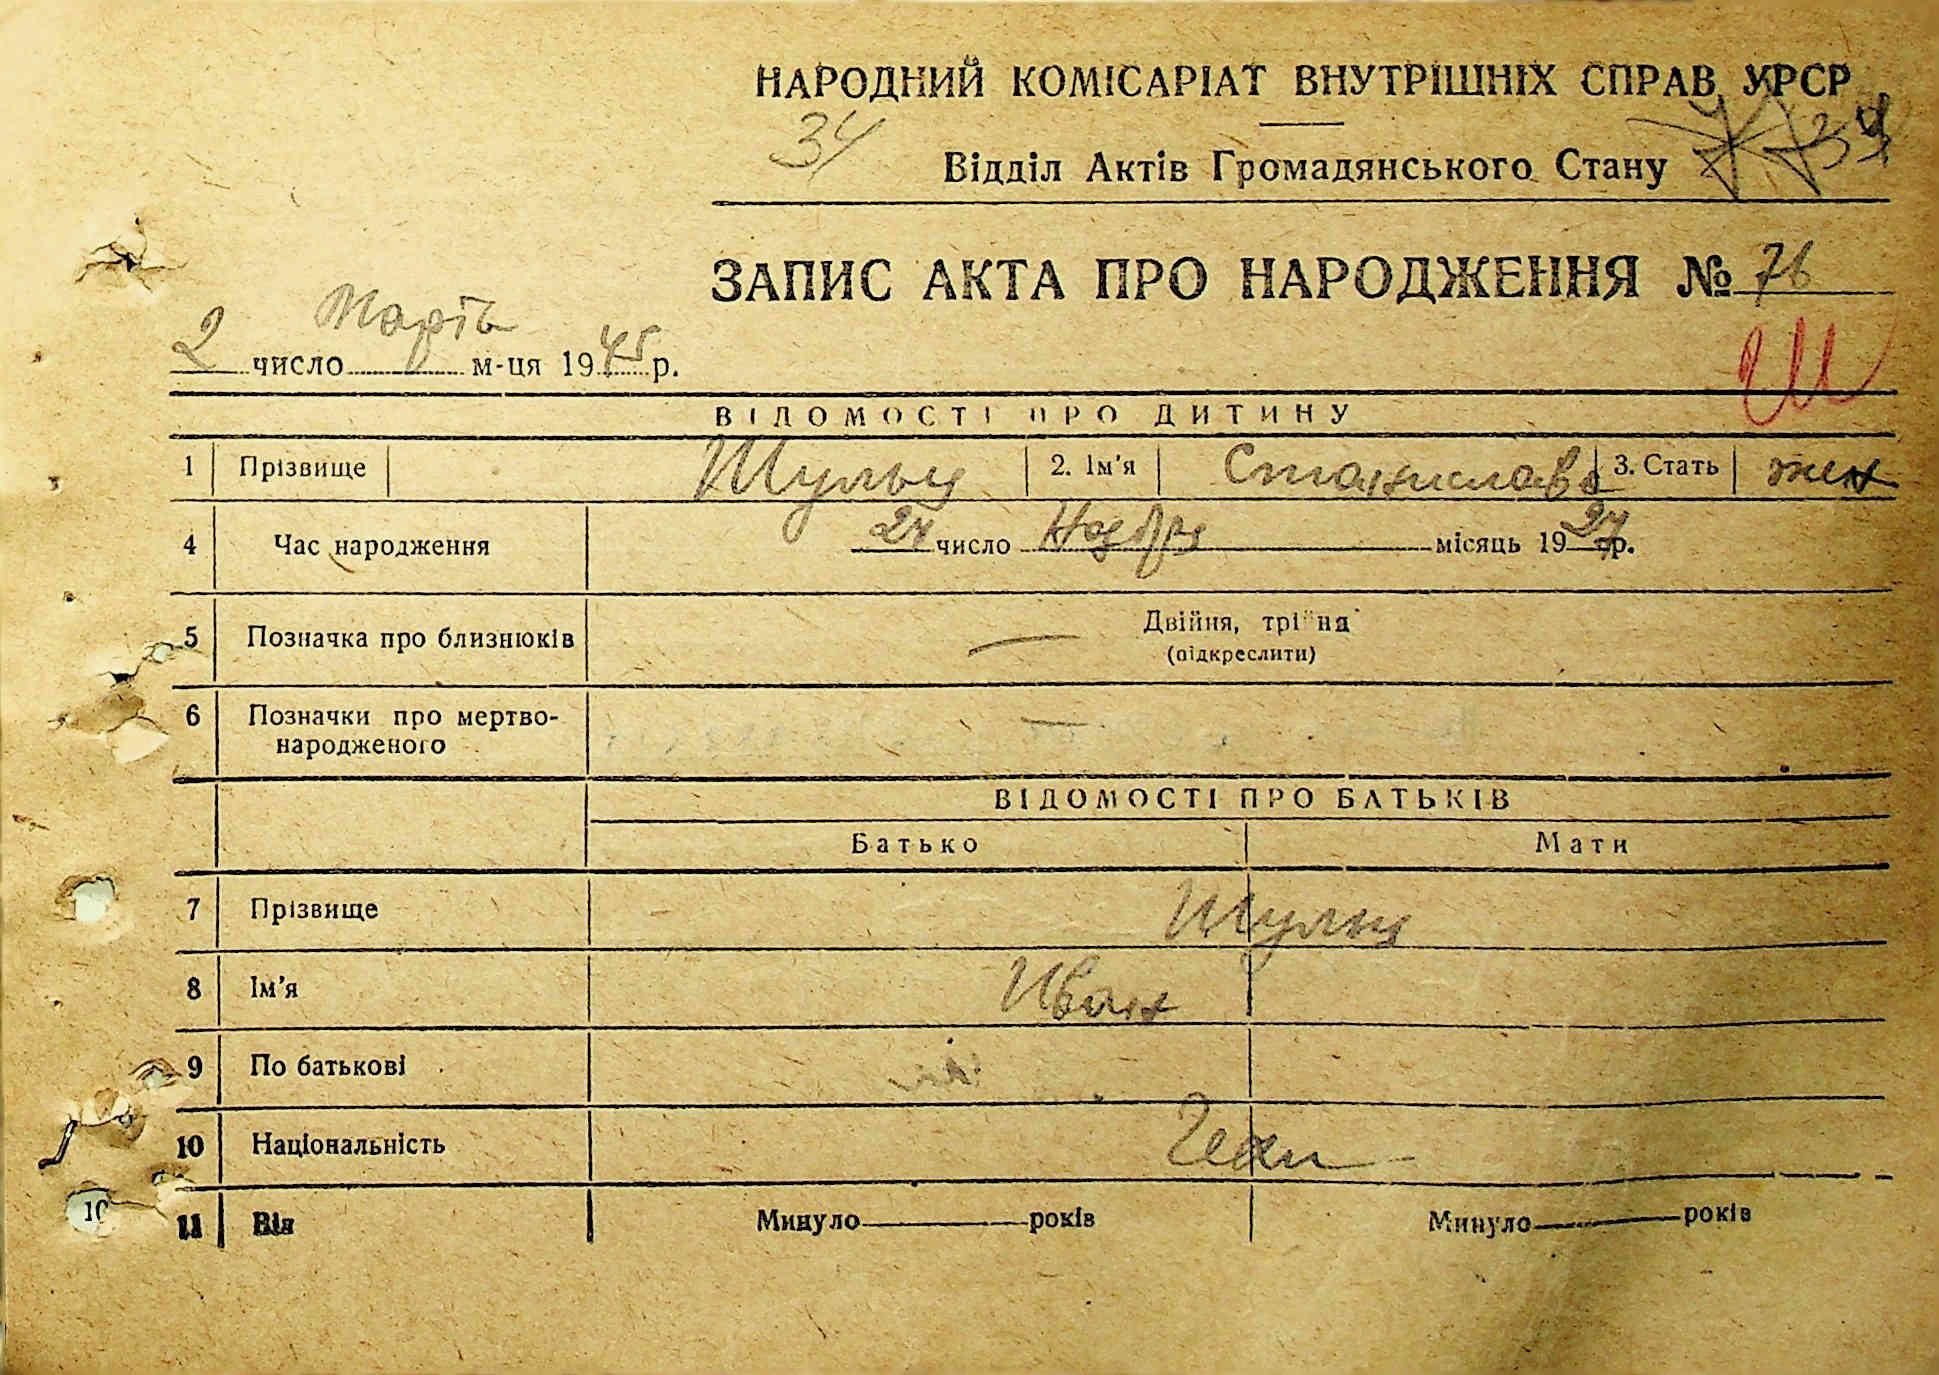 НАРОДНИЙ КОМІСАРІАТ ВНУТРІШНІХ СПРАВ УРСР
34
34
Відділ Актів Громадянського Стану
ЗАПИС АКТА ПРО НАРОДЖЕННЯ № 76
2 число Марта м-ця 1945 р.
Ш
ВІДОМОСТІ ПРО ДИТИНУ
1 Прізвище Шульц 2. Ім'я Станислава 3. Стать жен
4 Час народження 24 число Ноября місяць 1927 р.
5 Позначка про близнюків — Двійня, трійна
(підкреслити)
6 Позначки про мертво-
народженого —
ВІДОМОСТІ ПРО БАТЬКІВ
Батько Мати
7 Прізвище Шульц
8 Ім'я Иван
9 По батькові
10 Національність Чехи
10
11 Вік Минуло років Минуло років